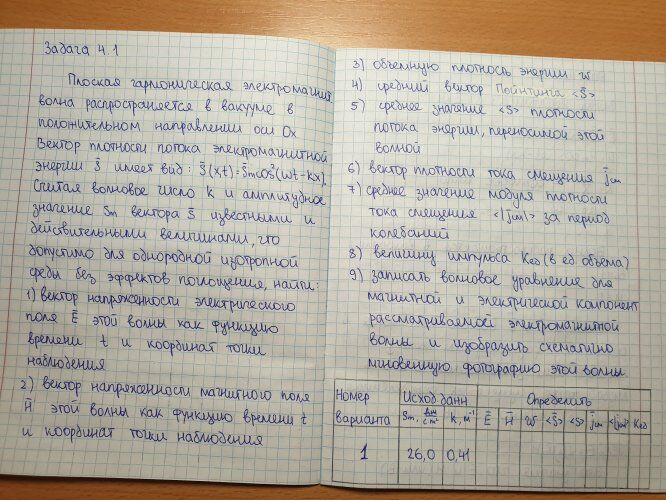 Задача 4.1
Плоская гармоническая электромагнит
волна распространяется в вакууме в
положительном направлении оси Ox
Вектор плотности потока электромагнитной
энергии S̄ имеет вид: S̄(x,t)=S̄mcos²(ωt-kx).
Считая волновое число k и амплитудное
значение Sm вектора S̄ известными и
действительными величинами, что
допустимо для однородной изотропной
среды без эффектов поглощения, найти:
1) вектор напряженности электрического
поля Ē этой волны как функцию
времени t и координат точки
наблюдения
2) вектор напряженности магнитного поля
H̄ этой волны как функцию времени t
и координат точки наблюдения
3) объемную плотность энергии w
4) средний вектор Пойнтинга <S̄>
5) среднее значение <S> плотности
потока энергии, переносимой этой
волной
6) вектор плотности тока смещения j̄см
7) среднее значение модуля плотности
тока смещения <|jсм|> за период
колебаний
8) величину импульса Kед (в ед. объема)
9) записать волновое уравнение для
магнитной и электрической компонент
рассматриваемой электромагнитной
волны и изобразить схематично
мгновенную фотографию этой волны
Номер варианта Исход данн Определить
Sm, Дж/с·м² k, м⁻¹ Ē H̄ w <S̄> <S> j̄см <|jсм|> Kед
1 26,0 0,41